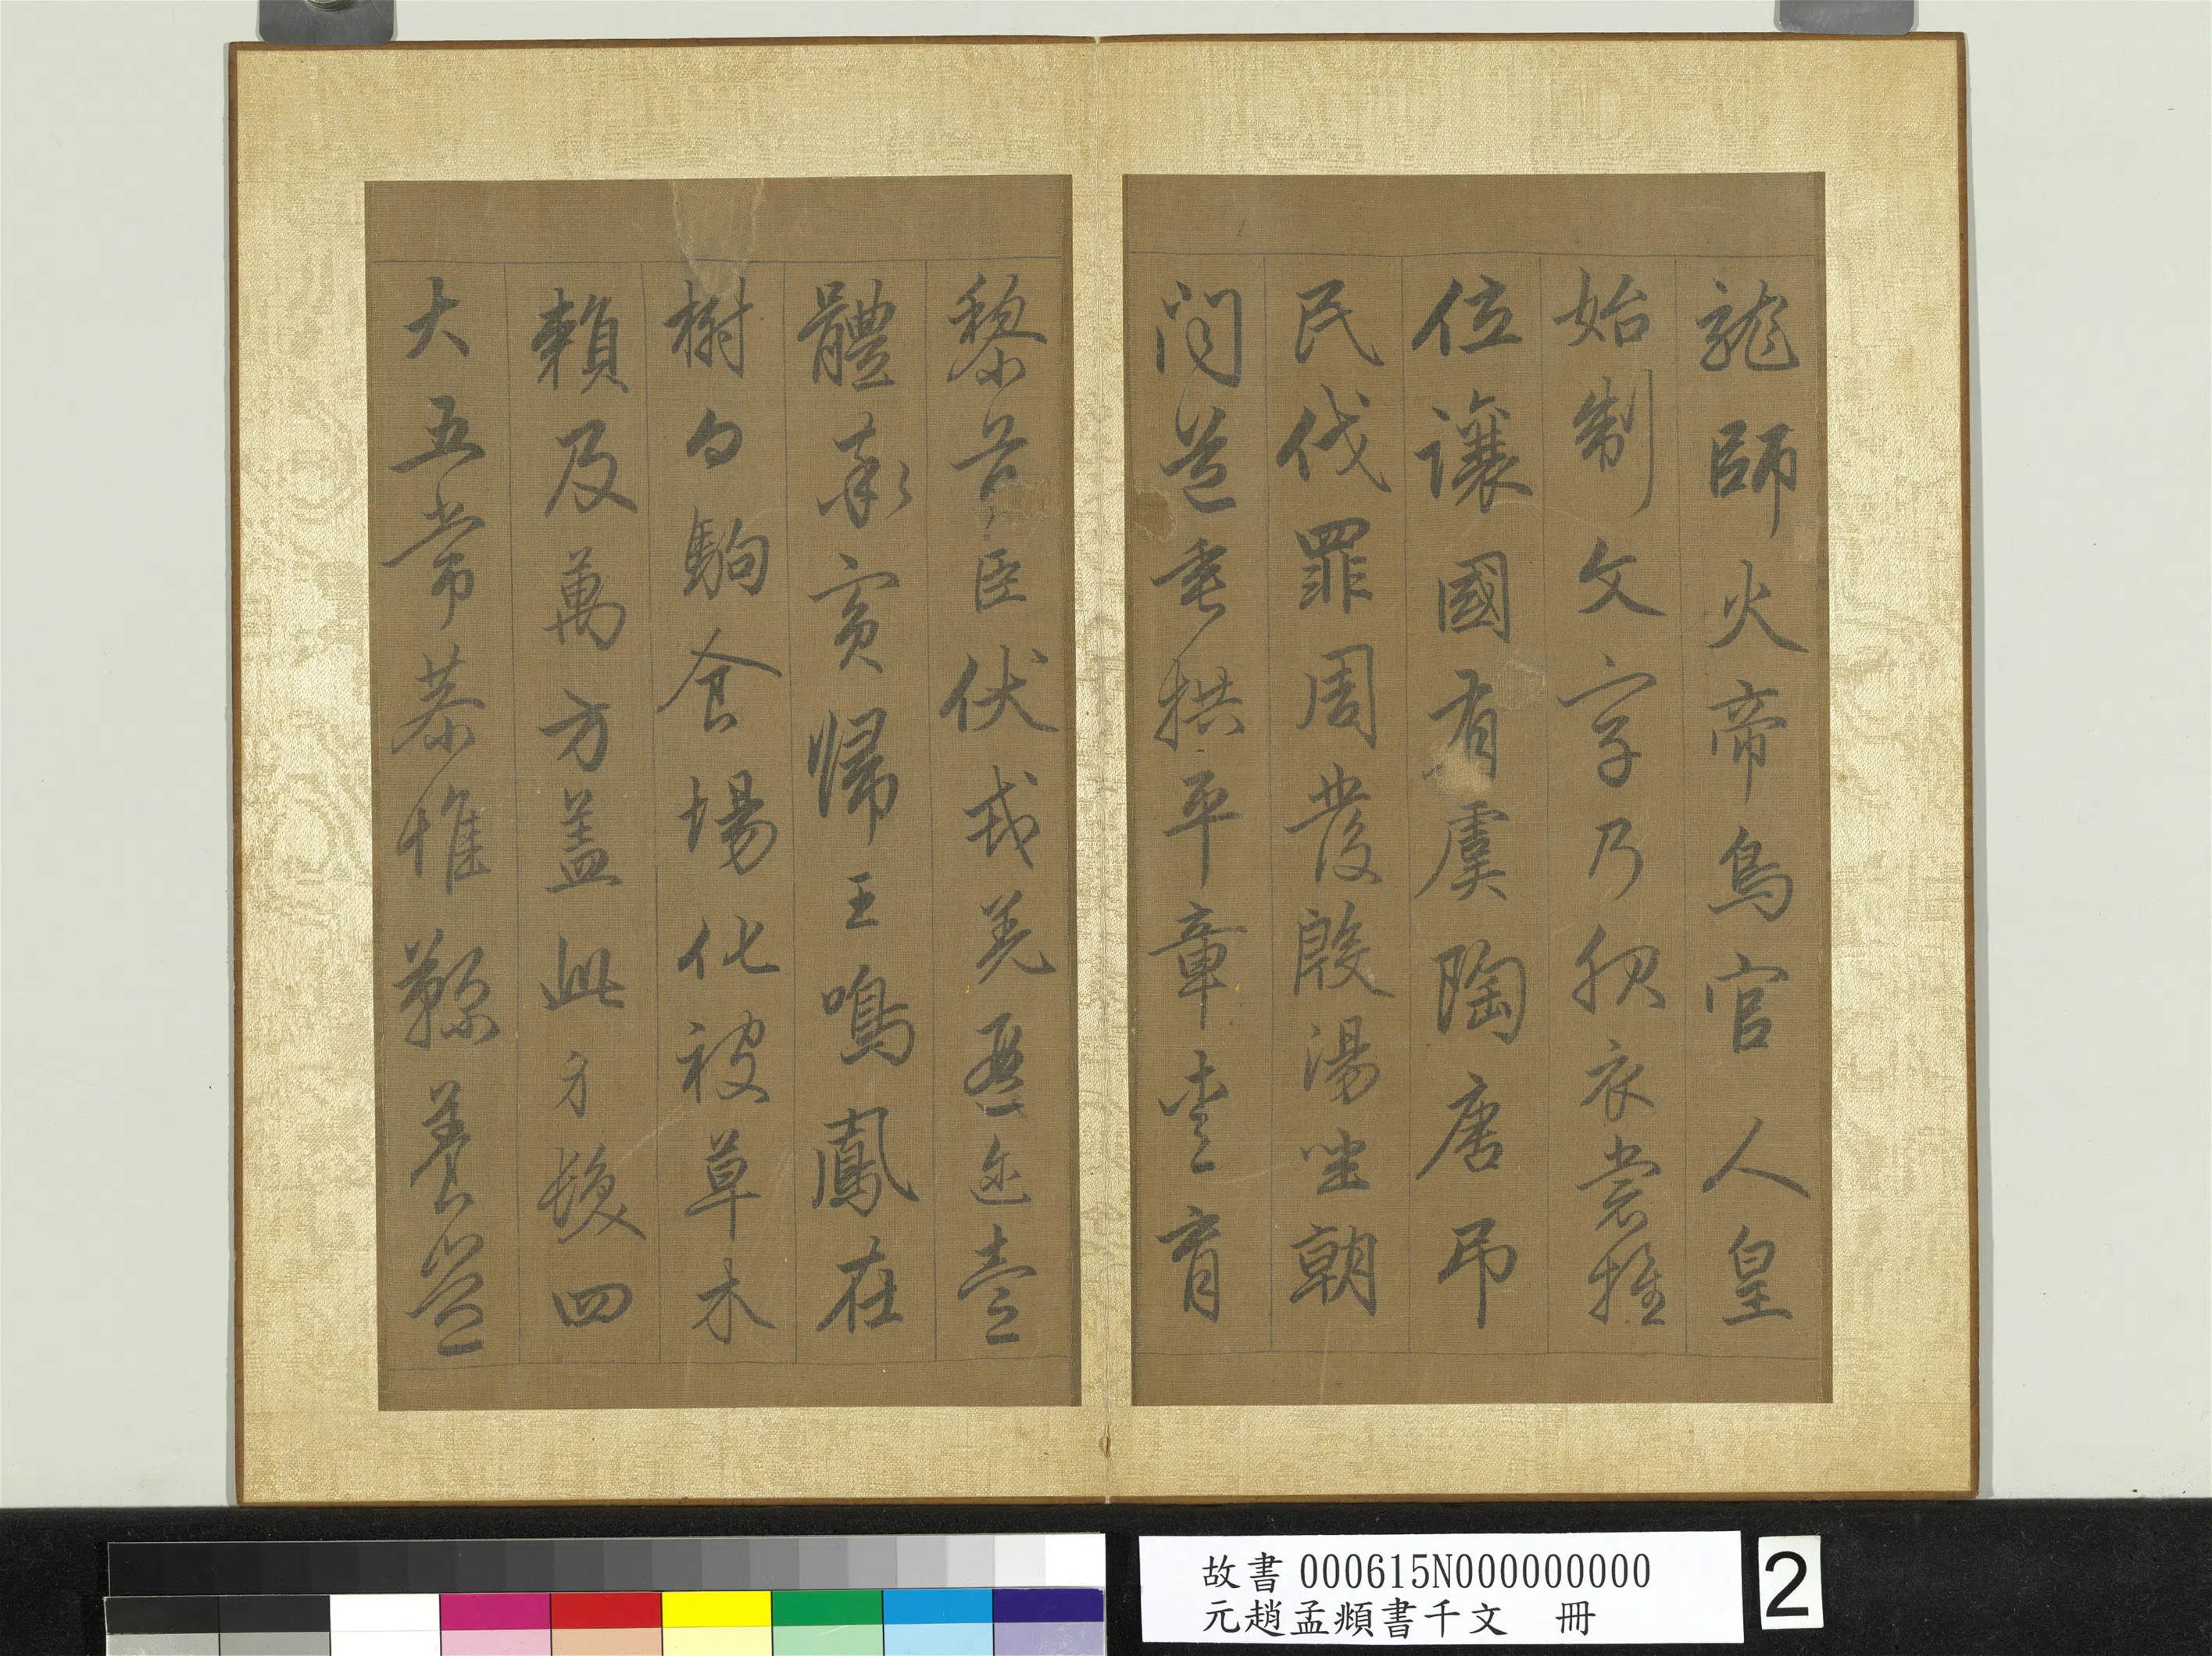 龍師火帝鳥官人皇
始制文字乃服衣裳推
位讓國有虞陶唐弔
民伐罪周發殷湯坐朝
問道垂拱平章愛育
黎首臣伏戎羌遐迩壹
體率賓歸王鳴鳳在
樹白駒食場化被草木
賴及萬方盖此身髮四
大五常恭惟鞠養豈
故書 000615N000000000
元趙孟頫書千文 冊
2